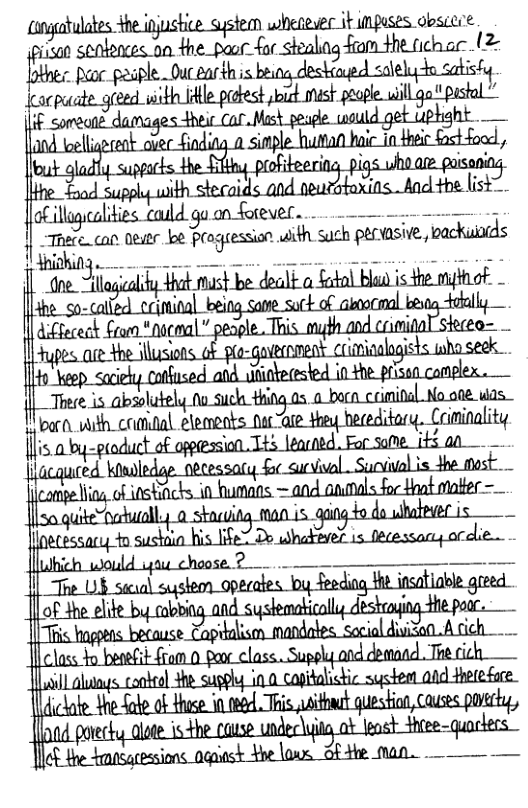 congratulates the injustice system whenever it imposes obscene
prison sentences on the poor for stealing from the rich or 12
other poor people. Our earth is being destroyed solely to satisfy
corporate greed with little protest, but most people will go "postal"
if someone damages their car. Most people would get uptight
and belligerent over finding a simple human hair in their fast food,
but gladly supports the filthy profiteering pigs who are poisoning
the food supply with steroids and neurotoxins. And the list
of illogicalities could go on forever.
There can never be progression with such pervasive, backwards
thinking.
One illogicality that must be dealt a fatal blow is the myth of
the so-called criminal being some sort of abnormal being totally
different from "normal" people. This myth and criminal stereo-
types are the illusions of pro-government criminologists who seek
to keep society confused and uninterested in the prison complex.
There is absolutely no such thing as a born criminal. No one was
born with criminal elements nor are they hereditary. Criminality
is a by-product of oppression. It's learned. For some it's an
acquired knowledge necessary for survival. Survival is the most
compelling of instincts in humans - and animals for that matter -
so quite naturally a starving man is going to do whatever is
necessary to sustain his life. Do whatever is necessary or die.
Which would you choose?
The U$ social system operates by feeding the insatiable greed
of the elite by robbing and systematically destroying the poor.
This happens because Capitalism mandates social divison. A rich
class to benefit from a poor class. Supply and demand. The rich
will always control the supply in a capitalistic system and therefore
dictate the fate of those in need. This, without question, causes poverty,
and poverty alone is the cause underlying at least three-quarters
of the transgressions against the laws of the man.